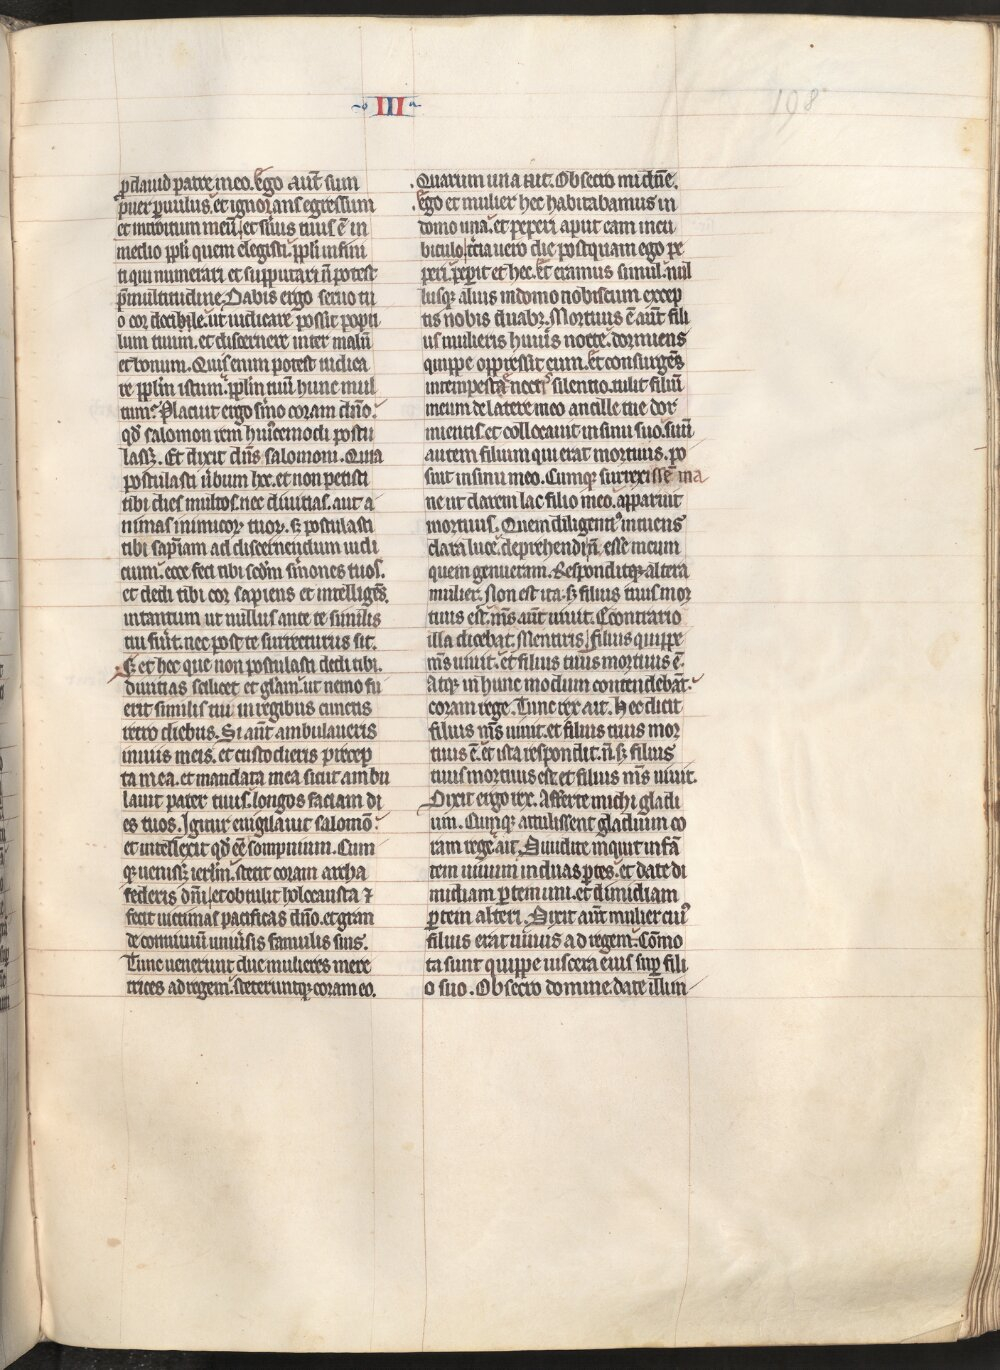 III
198
p dauid patre meo. Ego aut̄ sum
puer ꝑuulus. et ignorans egressum
et introitum meū. et seruus tuus ē in
medio ppl̄i quem elegisti. ppl̄i infini
ti qui numerari et supputari n̄ potest
p̄ multitudine. Dabis ergo seruo tu
o cor docibile. ut iudicare possit popu
lum tuum. et discernere inter malū
et bonum. Quis enim potest iudica
re ppl̄m istum. ppl̄m tuū hunc mul
tum. Placuit ergo sermo coram dn̄o.
qd̄ salomon rem huiuscemodi postu
lasꝫ. Et dixit dn̄s salomoni. Quia
postulasti u̇bum hoc. et non petisti
tibi dies multos. nec diuitias. aut a
nimas inimicoꝝ tuoꝝ. sꝫ postulasti
tibi sapīam ad discernendum iudi
cium. ecce feci tibi scd̄m sermones tuos.
et dedi tibi cor sapiens et intelligēs.
intantum ut nullus ante te similis
tui fūit. nec post te surrecturus sit.
Sꝫ et hec que non postulasti dedi tibi.
diuitias scilicet et glām. ut nemo fu
erit similis tui in regibus cunctis
retro diebus. Si aut̄ ambulaueris
in uiis meis. et custodieris precep
ta mea. et mandata mea sicut ambu
lauit pater tuus. longos faciam di
es tuos. Igitur euigilauit salomō.
et intellexit qd̄ eē sompnium. Cum
qꝫ uenisꝫ ierl̄m. stetit coram archa
federis dn̄i. et obtulit holocausta ⁊
fecit uictimas pacificas dn̄o. et gran
de conuiuiū uniu̇sis famulis suis.
Tunc uenerunt due mulieres mere
trices ad regem. steteruntqꝫ coram eo.
Quarum una ait. Obsecro mi dn̄e.
Ego et mulier hec habitabamus in
domo una. et peperi aput eam in cu
biculo. t̄cia uero die postquam ego pe
peri. peꝑit et hec. Et eramus simul. nul
lusqꝫ alius in domo nobiscum excep
tis nobis duabꝫ. Mortuus ē aut̄ fili
us mulieris huius nocte. dormiens
quippe oppressit eum. Et consurgēs
intempesta nocti silentio. tulit filiū
meum de latere meo ancille tue dor
mientis. et collocauit in sinu suo. suū
autem filium qui erat mortuus. po
suit in sinu meo. Cumqꝫ surrexissē ma
ne ut darem lac filio meo. apparuit
mortuus. Quem diligentiꝰ intuens
clara luce. deprehendi n̄ esse meum
quem genueram. Responditqꝫ altera
mulier. Non est ita. sꝫ filius tuus mor
tuus est. mꝰs aut̄ uiuit. Econtrario
illa dicebat. Mentiris. filius quippe
m̄s uiuit. et filius tuus mortuus ē.
Atqꝫ in hunc modum contendebāt.
coram rege. Tunc rex ait. Hec dicit
filius m̄s uiuit. et filius tuus mor
tuus ē. et ista respondit. n̄. sꝫ filius
tuus mortuus est. et filius m̄s uiuit.
Dixit ergo rex. Afferte michi gladi
um. Cumqꝫ attulissent gladium co
ram rege. ait. Diuidite inquit infā
tem uiuum in duas ꝑtes. et date di
midiam ꝑtem uni. et dimidiam
ꝑtem alteri. Dixit aut̄ mulier cuiꝰ
filius erat uiuus ad regem. Cōmo
ta sunt quippe uiscera eius suꝑ fili
o suo. Obsecro domine. date illi in